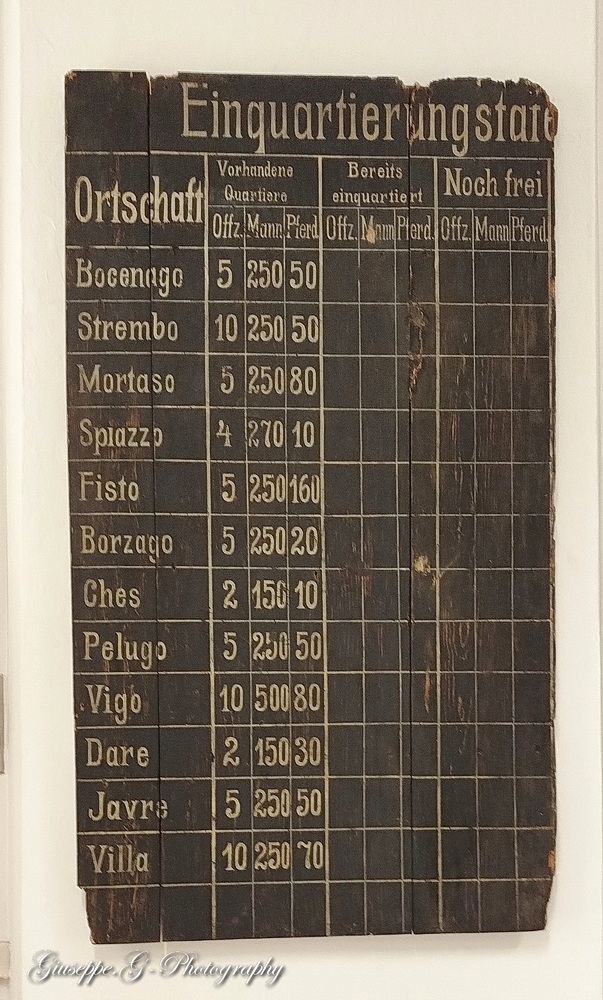 Einquartierungstafe
Ortschaft Vorhandene Quartiere Bereits einquartiert Noch frei
Offz. Mann Pferd Offz. Mann Pferd. Offz. Mann Pferd.
Bocenago 5 250 50
Strembo 10 250 50
Mortaso 5 250 80
Spiazzo 4 270 10
Fisto 5 250 160
Borzago 5 250 20
Ches 2 150 10
Pelugo 5 250 50
Vigo 10 500 80
Dare 2 150 30
Javre 5 250 50
Villa 10 250 70
Giuseppe.G-Photography